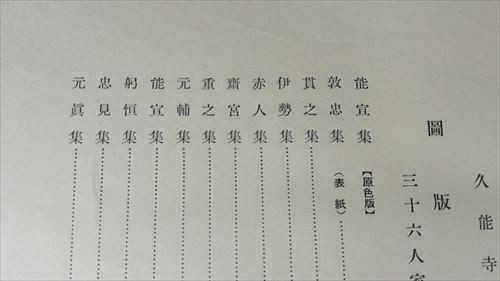 久能寺
圖版
三十六人家
能宣集【原色版】
敦忠集(表紙)
貫之集
伊勢集
赤人集
齋宮集
重之集
元輔集
能宣集
躬恒集
忠見集
元眞集